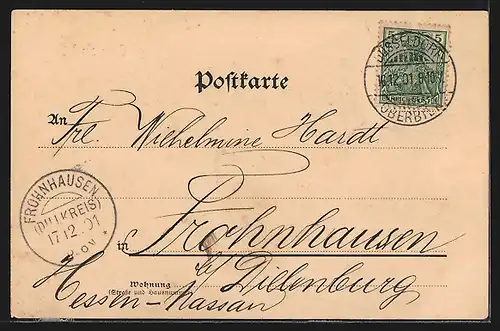 Postkarte
An
Frl. Wilhelmine Hardt
in Frohnhausen
b/ Dillenburg
Wohnung
(Straße und Hausnummer)
Hessen-Nassau
FROHNHAUSEN
(DILLKREIS)
17 12 01
DÜSSELDORF
16.12.01.9-10
OBERBILK
5